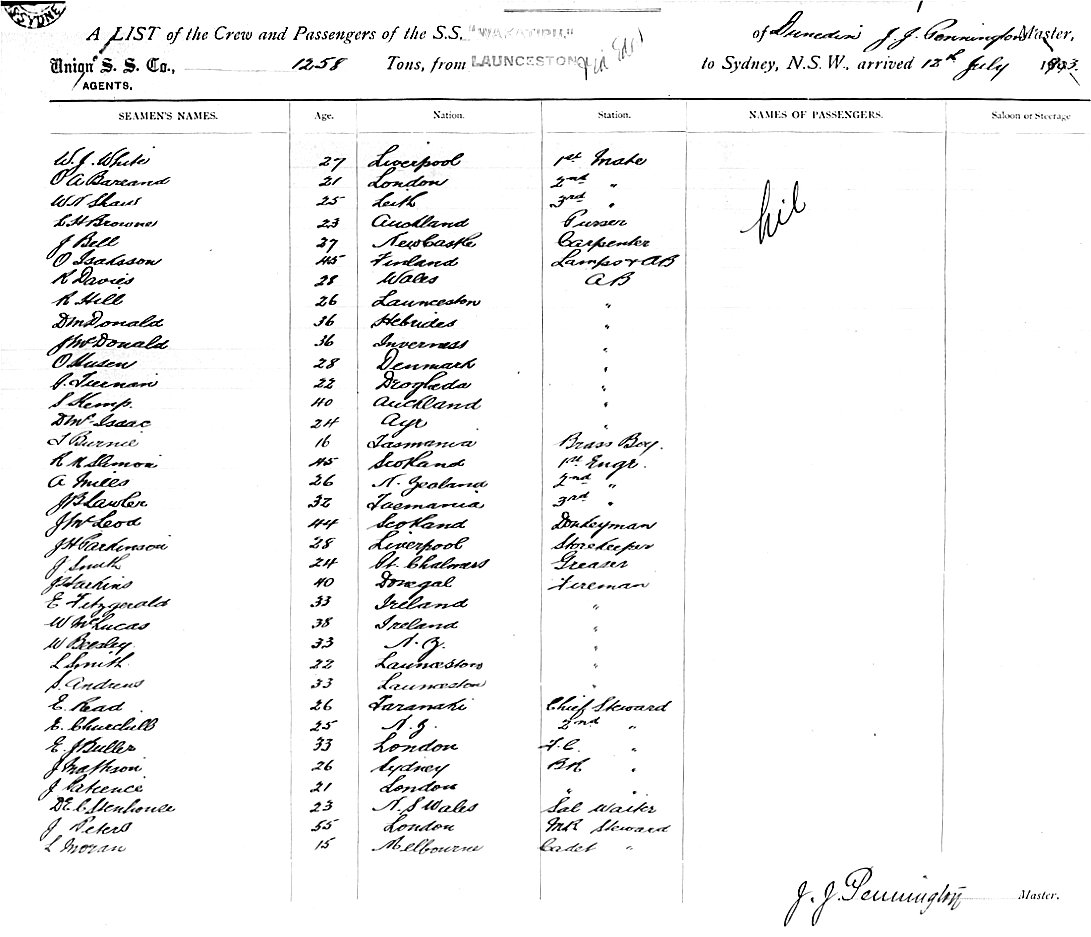 SYDNE
A LIST of the Crew and Passengers of the S.S. "WAKATIPU" of Dunedin J. J. Pennington Master,
Union S. S. Co., 1258 Tons, from LAUNCESTON to Sydney, N.S.W., arrived 12th July 1903.
AGENTS.
SEAMEN'S NAMES. Age. Nation. Station. NAMES OF PASSENGERS. Saloon or Steerage
W. J. White 27 Liverpool 1st Mate
O A Bareand 21 London 2nd "
W N Shaw 25 Leith 3rd "
nil
E H Browne 23 Auckland Purser
J Bell 37 NewCastle Carpenter
O Isaksson 45 Finland Lamps & AB
R Davies 28 Wales AB
R Hill 26 Launceston "
D McDonald 36 Hebrides "
J McDonald 36 Inverness "
O 28 Denmark "
J. Tiernan 22 Drogheda "
S Kemp. 40 Auckland "
D McIsaac 24 Ayr "
T Burnie 16 Tasmania Brass Boy.
R K Slimon 45 Scotland 1st Engr.
A Mills 26 N. Zealand 2nd "
J B Lawler 32 Tasmania 3rd "
J McLeod 44 Scotland Donkeyman
J H Parkinson 28 Liverpool Storekeeper
J Smith 24 Pt. Chalmers Greaser
J Harkins 40 Donegal Fireman
E Fitzgerald 33 Ireland "
W McLucas 38 Ireland "
W Beesley 33 N. Z. "
L Smith 22 Launceston "
S. Andrews 33 Launceston "
E. Read 26 Taranaki Chief Steward
E. Churchill 25 N. Z. 2nd "
E. J Buller 33 London F.C. "
J Mathson 26 Sydney BR "
J Patience 21 London " "
D E C Stenhouse 23 N. S Wales Sal Waiter
J Peters 55 London MR Steward
L Moran 15 Melbourne Cadet "
J. J. Pennington Master.